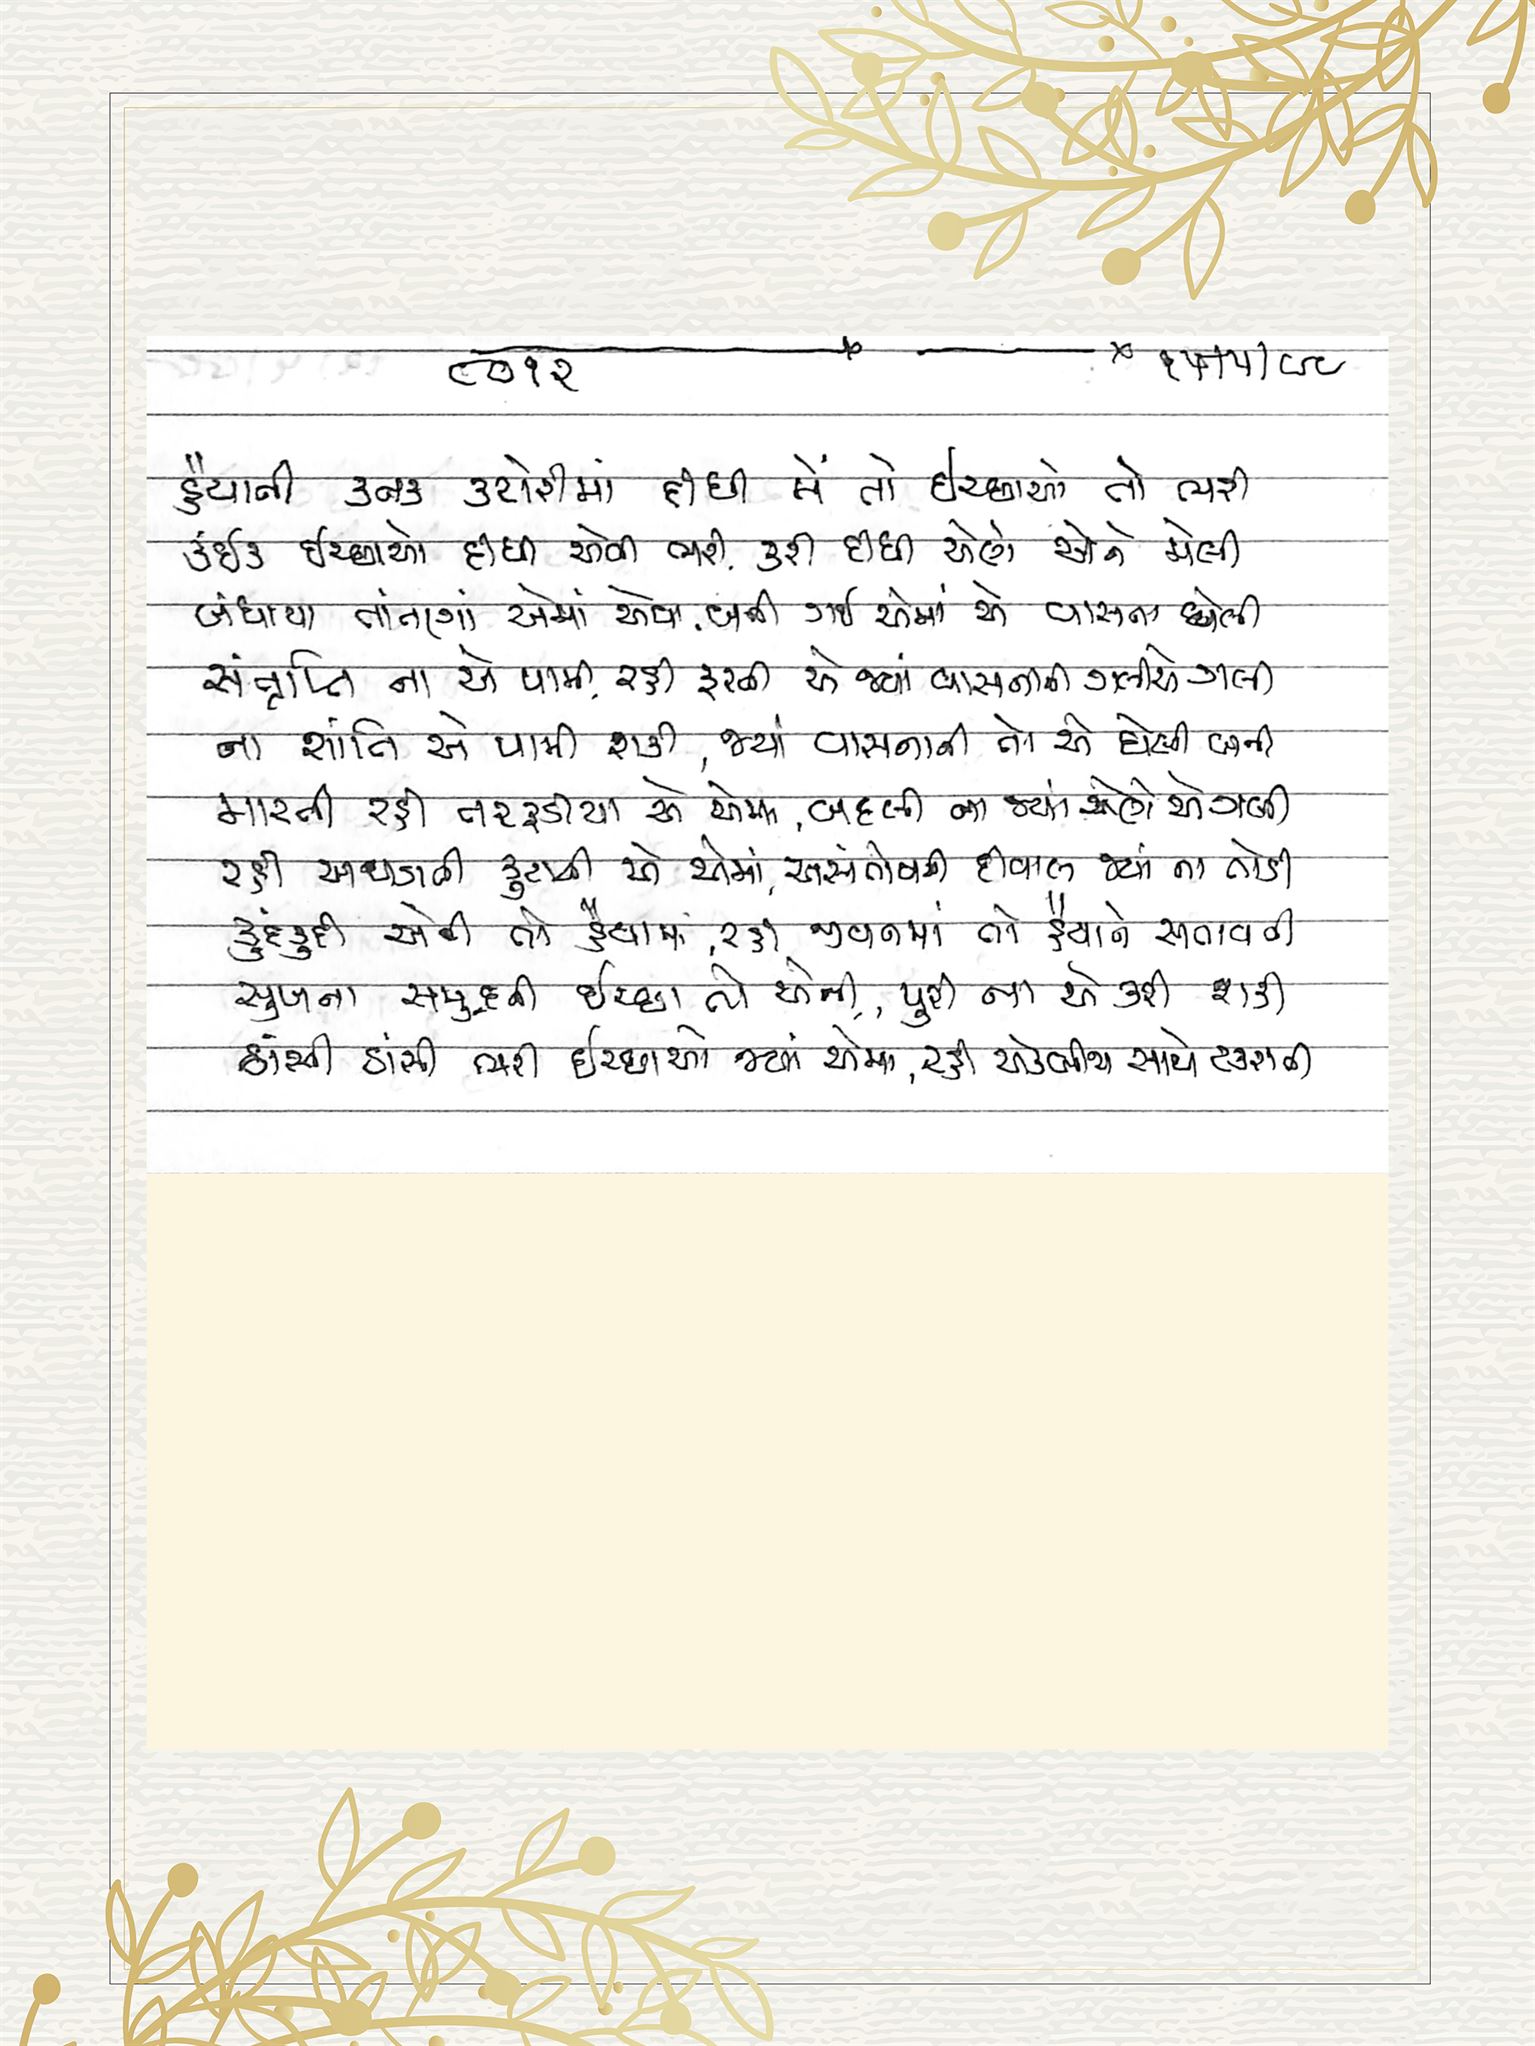 ૯૭૧૨ ૧૫|૫|૮૮
હૈયાની કનક કટોરીમાં દીધી મેં તો ઈચ્છાઓ તો ભરી
કંઈક ઈચ્છાઓ દીધી એવી ભરી, કરી દીધી એણે એને મેલી
બંધાયા તાંતણાં એમાં એવા, બની ગઈ એમાં એ વાસના ઘેલી
સંતૃપ્તિ ના એ પામી, રહી ફરતી એ જ્યાં વાસનાની ગલીએ ગલી
ના શાંતિ એ પામી શકી, જ્યાં વાસનાની તો એ ઘેલી બની
મારતી રહી તરફડીયા એ એમાં, બદલી ના જ્યાં એણે એ ગલી
રહી અથડાતી કુટાતી એ એમાં, અસંતોષની દીવાલ જ્યાં ના તોડી
કુદંકુદી એની તો હૈયામાં, રહી જીવનમાં તો હૈયાને સતાવતી
સુખના સમુદ્રની ઈચ્છા તો એની, પુરી ના એ કરી શકી
ઠાંસી ઠાંસી ભરી ઈચ્છાઓ જ્યાં એમાં, રહી એકબીજા સાથે ટકરાતી